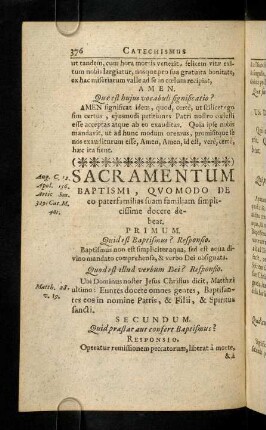 376 CATECHISMUS
ut tandem, cum hora mortis venerit, felicem vitæ exi-
tum nobis largiatur, nosque pro sua gratuita bonitate,
ex hac miseriarum valle ad se in cœlum recipiat,
AMEN.
Quæ est hujus vocabuli significatio?
AMEN significat idem, quod, certè, ut scilicet ego
sim certus, ejusmodi petitiones Patri nostro cœlesti
esse acceptas atque ab eo exauditas. Quia ipse nobis
mandavit, ut ad hunc modum oremus, promisitque se
nos exauditurum esse, Amen, Amen, id est, verè, certè,
hæc ita fient.
SACRAMENTUM
BAPTISMI, QVOMODO DE
eo paterfamilias suam familiam simpli-
cissime docere de-
beat.
Aug. C. 12.
Apol. 156.
Artic. Sm.
329. Cat. M.
PRIMUM.
Quid est Baptismus? Responsio.
Baptismus non est simpliciter aqua, sed est aqua di-
vino mandato comprehensa, & verbo Dei obsignata.
Quod est illud verbum Dei? Responsio.
Matth. 28.
v. 19.
Ubi Dominus noster Jesus Christus dicit, Matthæi
ultimo: Euntes docete omnes gentes, Baptisan-
tes eos in nomine Patris, & Filii, & Spiritus
sancti.
SECUNDUM.
Quid præstat aut confert Baptismus?
RESPONSIO.
Operatur remissionem peccatorum, liberat à morte,
& à